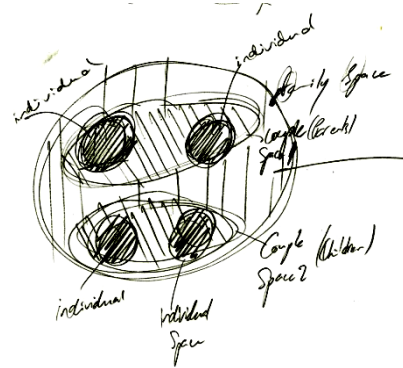 individual
individual
family Space
couple (Parents)
Space 1
Couple (Children)
Space 2
individual
individual
Space